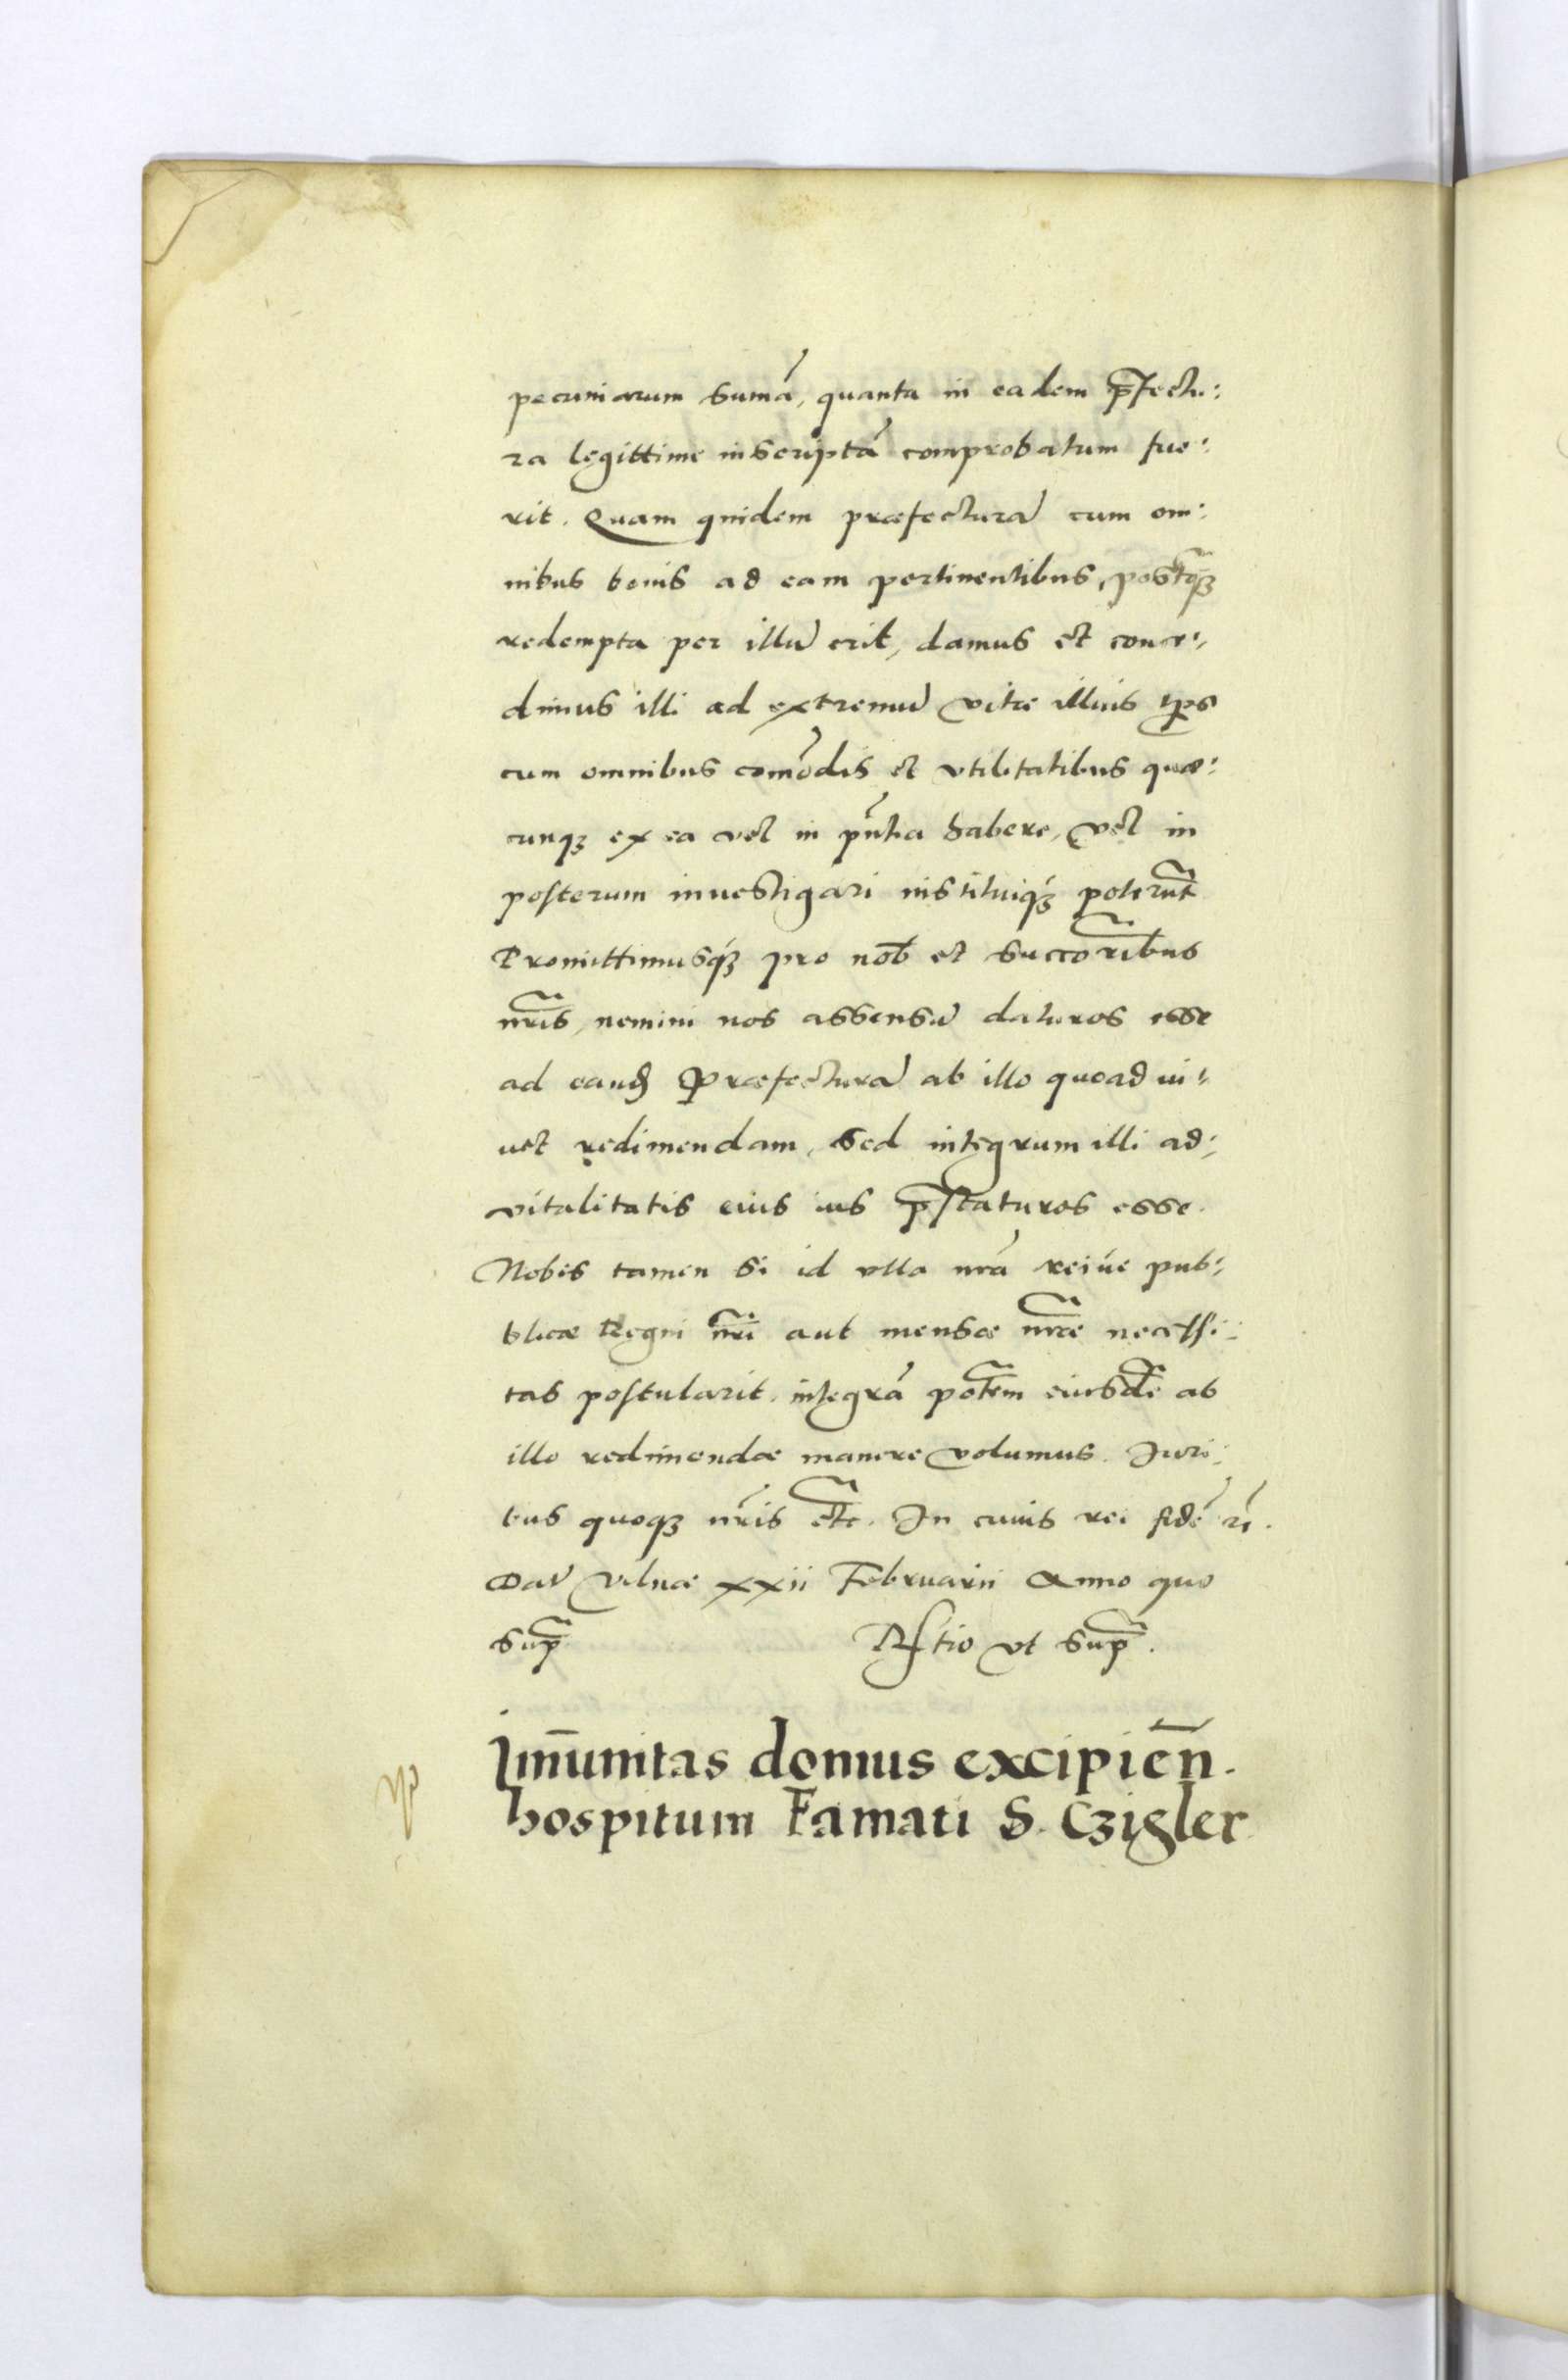 pecuniarum sumā, quanta in eadem p̄fectu:
ra legittime inscriptā comprobatum fue:
rit. Quam quidem præfecturā cum om:
nibus bonis ad eam pertinentibus, postq̃ꝫ
redempta per illū erit, damus et conce:
dimus illi ad extremū vitæ illius tp̄s
cum omnibus com̄odis et vtilitatibus quæ:
cunqꝫ ex ea vel in pn̄tia habere, vel in
posterum inuestigari instituiqꝫ poterūt
Promittimusqꝫ pro nob̄ et succorībus
nr̄is, nemini nos assensū daturos esse
ad eand̄ Præfecturā ab illo quoad ui:
uet redimendam, sed integrum illi ad:
vitalitatis eius ius p̄staturos esse.
Nobis tamen si id vlla nr̄a reiúe pub:
blicæ Regni nr̄i aut mensæ nr̄æ necessi:
tas postularit, integrā potēm eiusdē ab
illo redimendæ manere volumus. Juri:
bus quoqꝫ nr̄is etc̄. In cuius rei fidē rī.
Dat̄ Vilnæ xxii Februarii Anno quo
sup̄ Rs̄tio vt sup̄.
Im̄unitas domus excipień.
hospitum Famati S. Czigler